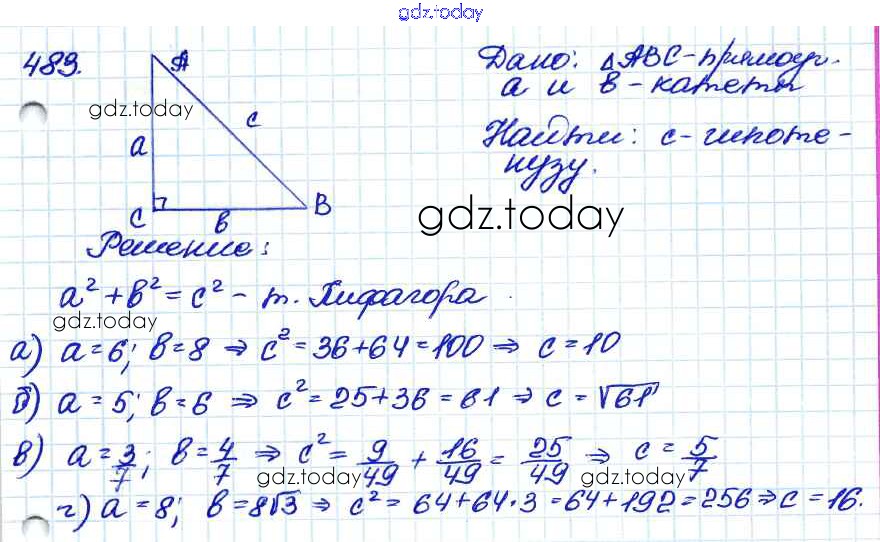 gdz.today
483.
A
Дано: ΔABC-прямоуг.
a и в - катеты
gdz.today
c
a
Найти: c - гипоте-
нузу.
C
в
B
gdz.today
Решение:
a² + в² = c² - т. Пифагора
gdz.today
а) a = 6; в = 8 ⇒ c² = 36 + 64 = 100 ⇒ c = 10
б) a = 5; в = 6 ⇒ c² = 25 + 36 = 61 ⇒ c = √61
в) a = 3/7; в = 4/7 ⇒ c² = 9/49 + 16/49 = 25/49 ⇒ c = 5/7
gdz.today gdz.today
г) a = 8; в = 8√3 ⇒ c² = 64 + 64 · 3 = 64 + 192 = 256 ⇒ c = 16.